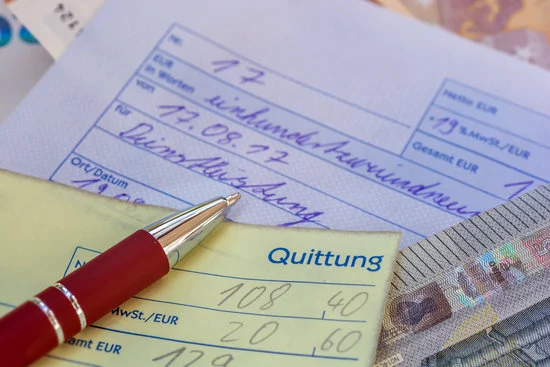 Nr. 17
EUR
in Worten einhundertzweiundneun
von 17.08.17
für Dienstleistung
Ort/Datum
Netto EUR
+19 % MwSt./EUR
Gesamt EUR 1
Quittung
N 108,40
MwSt./EUR 20,60
amt EUR 129